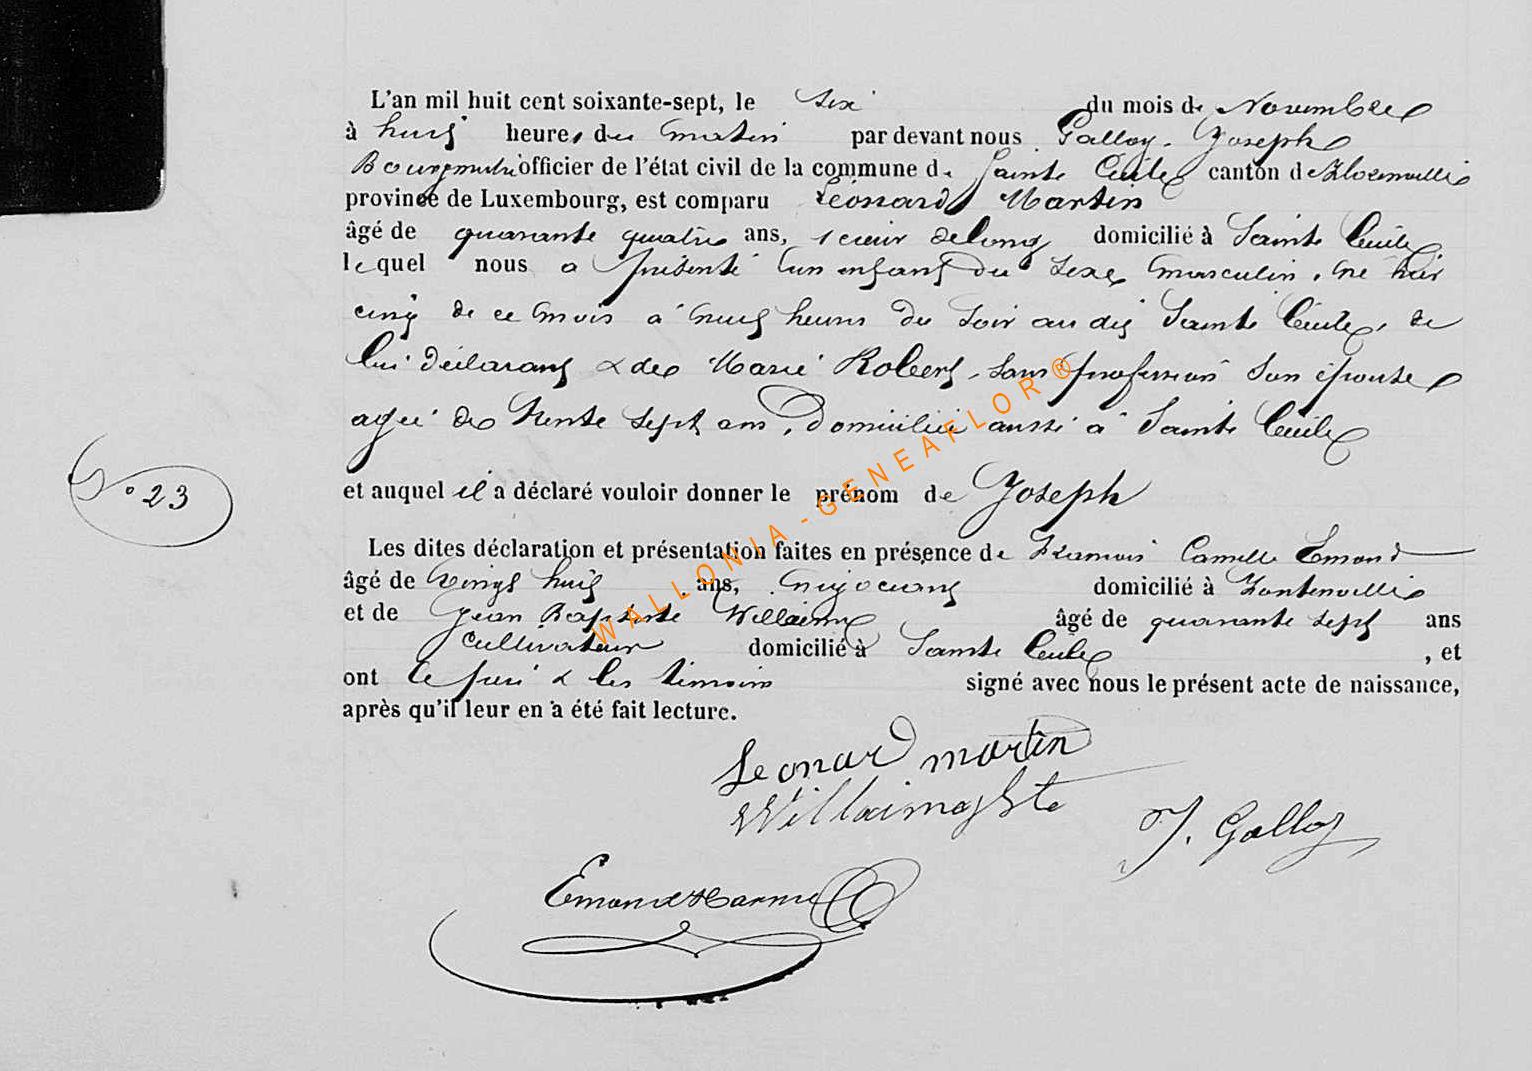 L'an mil huit cent soixante-sept, le six du mois de Novembre
à huit heures du matin par devant nous Galloy Joseph
Bourgmestre officier de l'état civil de la commune de Sainte Cécile canton de Florenville
province de Luxembourg, est comparu Léonard Martin
âgé de quarante quatre ans, scieur de long domicilié à Sainte Cécile
lequel nous a présenté un enfant du sexe masculin, né hier
cinq de ce mois à neuf heures du soir au dit Sainte Cécile, de
lui déclarant & de Marie Robert, sans profession son épouse
agée de trente sept ans, domiciliée aussi à Sainte Cécile
N° 23
et auquel il a déclaré vouloir donner le prénom de Joseph
Les dites déclaration et présentation faites en présence de François Camille Emond
âgé de vingt huit ans, négociant domicilié à Fontenoille
et de Jean Baptiste Willaime âgé de quarante sept ans
cultivateur domicilié à Sainte Cécile , et
ont le père & les témoins signé avec nous le présent acte de naissance,
après qu'il leur en a été fait lecture.
Leonard martin
Willaime J. Galloy
Emond
WALLONIA-GENEAFLOR®